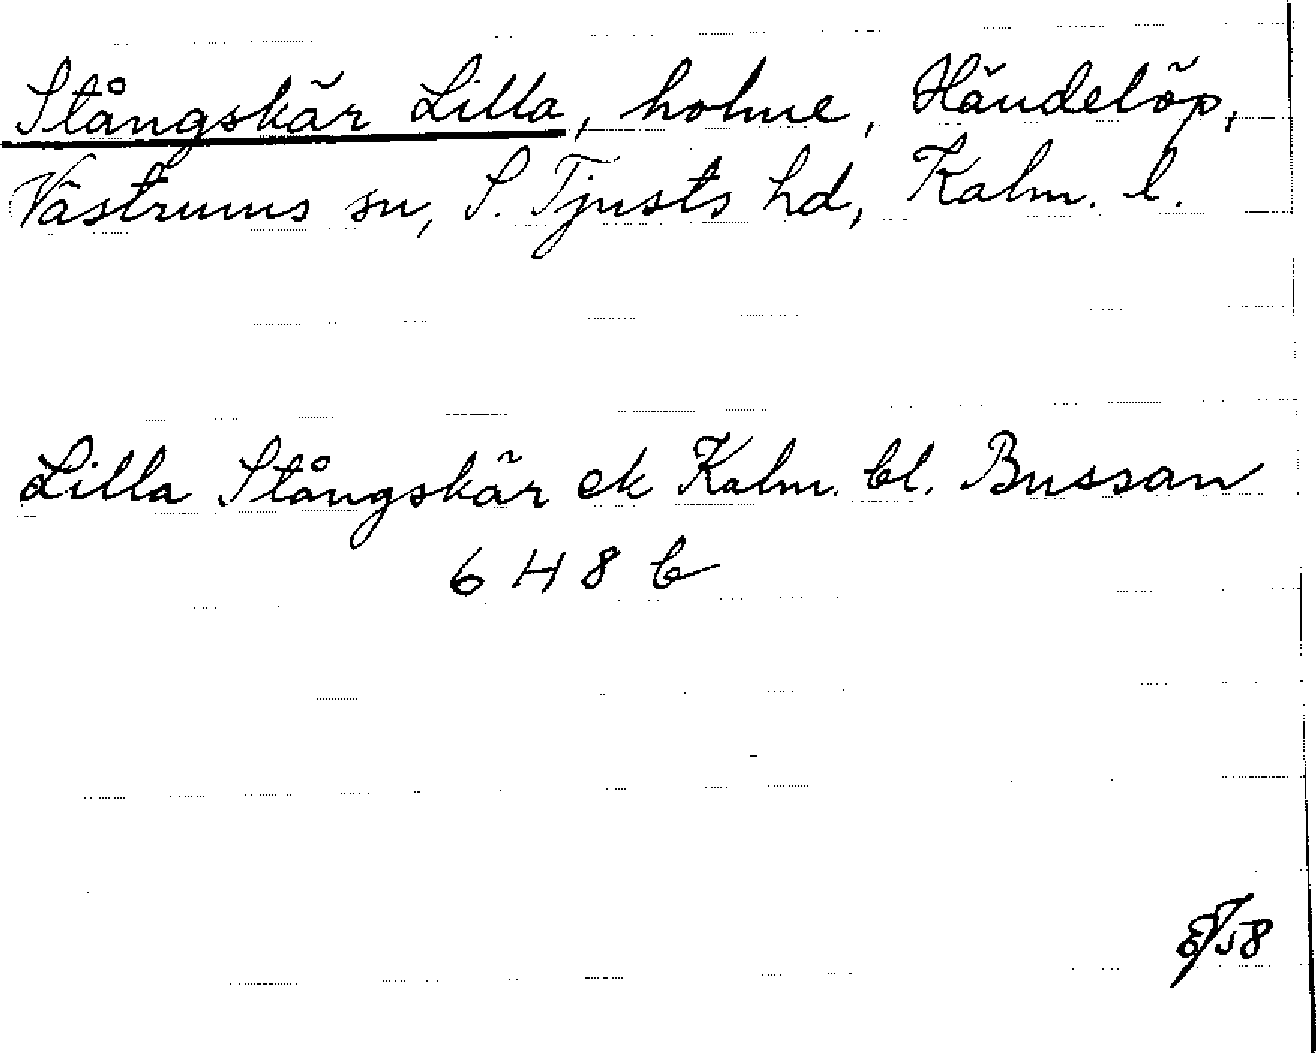 Stångskär Lilla, holme, Händelöp,
Västrums sn, S. Tjusts hd, Kalm. l.
Lilla Stångskär ek Kalm. bl. Bussan
6 H 8 b